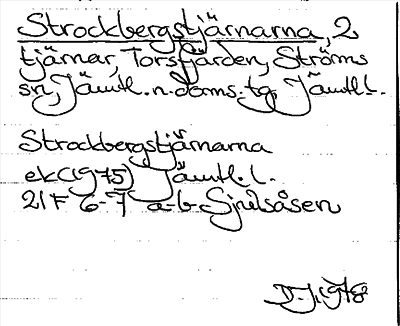 Strockbergstjärnarna, 2
tjärnar, Torsfjärden, Ströms
sn, Jämtl. n. doms. tg, Jämtl. l.
Strockbergstjärnarna
ek (1975) Jämtl. l.
21 F 6-7 a-b Sjulsåsen
D-J. 1978